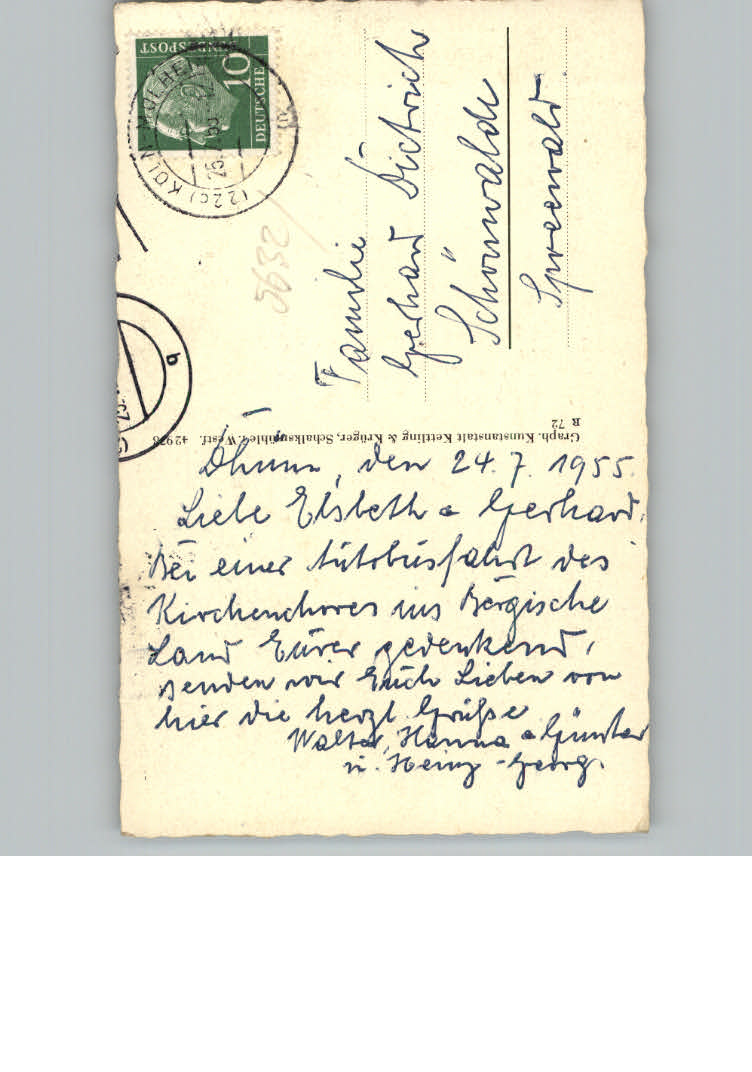 Dhünn, den 24.7.1955.
Liebe Elsbeth u Gerhard,
Bei einer Autobusfahrt des
Kirchenchores ins Bergische
Land Eurer gedenkend,
senden wir Euch Lieben von
hier die herzl. Grüße
Walter, Hanna u Günter
u. Heinz-Georg.
Familie
Gerhard Dietrich
Schönwalde
Spreewald
DEUTSCHE
BUNDESPOST
10
(22c) KÖLN-MÜLHEIM
b
Graph. Kunstanstalt Kettling & Krüger, Schalksmühle i. Westf. 42978
R 72